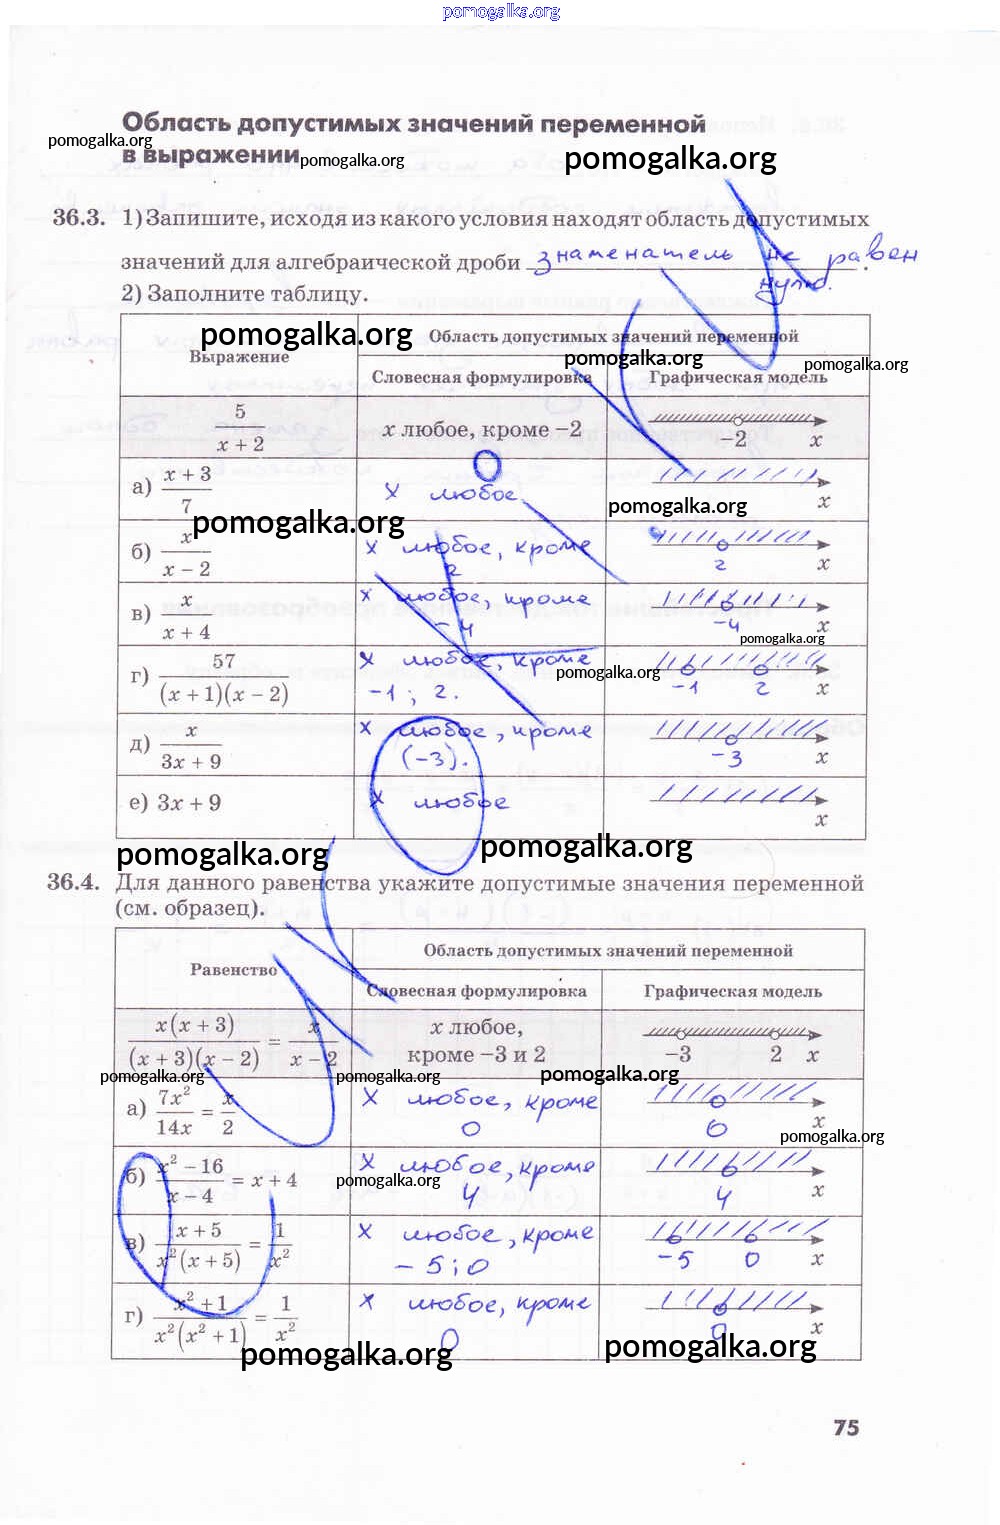 pomogalka.org
Область допустимых значений переменной
pomogalka.org
в выражении
pomogalka.org
pomogalka.org
36.3. 1) Запишите, исходя из какого условия находят область допустимых
значений для алгебраической дроби знаменатель не равен
нулю.
2) Заполните таблицу.
pomogalka.org
Выражение
Область допустимых значений переменной
pomogalka.org
pomogalka.org
Словесная формулировка Графическая модель
5/(x + 2) x любое, кроме −2 −2 x
а) (x + 3)/7 x любое. x
pomogalka.org
pomogalka.org
б) x/(x − 2) x любое, кроме 2 2 x
в) x/(x + 4) x любое, кроме −4 −4 x
pomogalka.org
г) 57/((x + 1)(x − 2)) x любое, кроме −1 ; 2. −1 2 x
pomogalka.org
д) x/(3x + 9) x любое, кроме (−3). −3 x
е) 3x + 9 x любое x
pomogalka.org
pomogalka.org
36.4. Для данного равенства укажите допустимые значения переменной
(см. образец).
Равенство
Область допустимых значений переменной
Словесная формулировка Графическая модель
x(x + 3)/((x + 3)(x − 2)) = x/(x − 2) x любое, кроме −3 и 2 −3 2 x
pomogalka.org
pomogalka.org
pomogalka.org
а) 7x²/14x = x/2 x любое, кроме 0 0 x
pomogalka.org
б) (x² − 16)/(x − 4) = x + 4 x любое, кроме 4 4 x
pomogalka.org
в) (x + 5)/(x²(x + 5)) = 1/x² x любое, кроме −5 ; 0 −5 0 x
г) (x² + 1)/(x²(x² + 1)) = 1/x² x любое, кроме 0 0 x
pomogalka.org
pomogalka.org
75